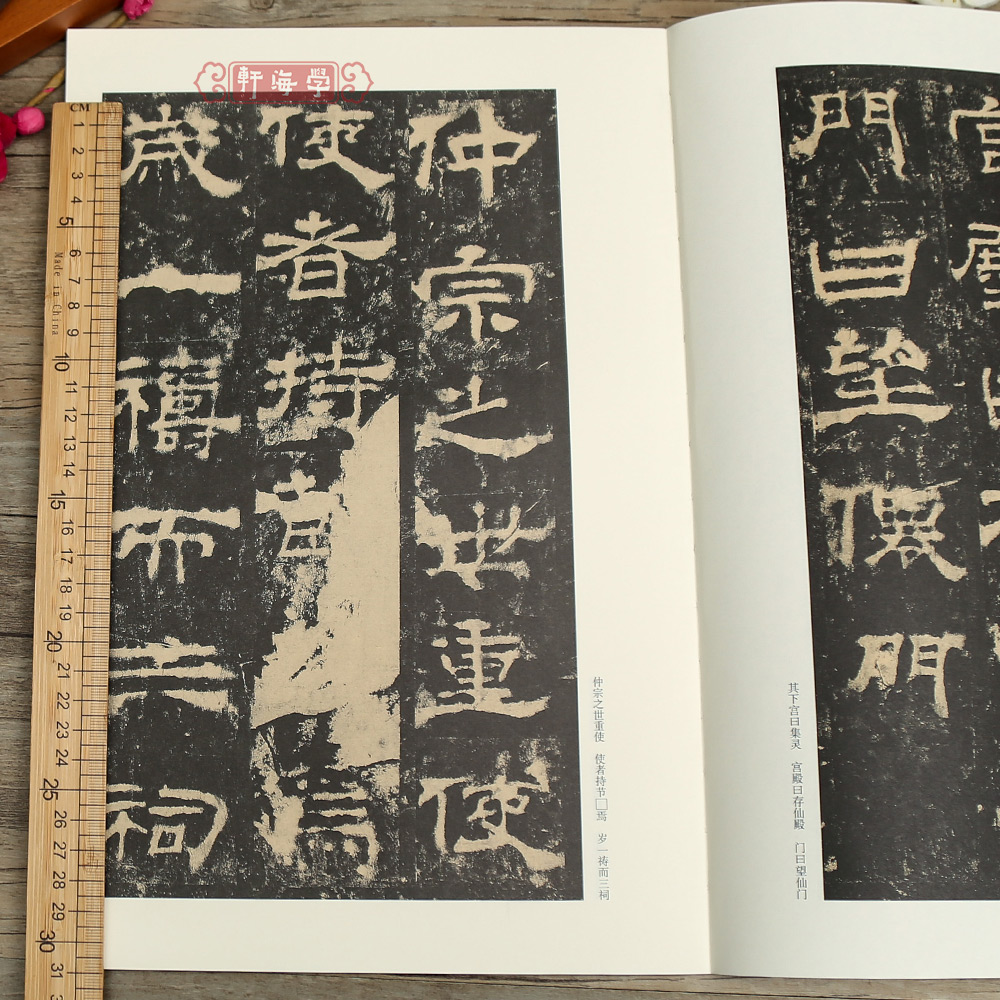 學海軒
門曰望僊門
其下宫曰集灵 宫殿曰存仙殿 门曰望仙门
仲宗之世重使
使者持節焉
歲一禱而三祠
仲宗之世重使 使者持节□焉 岁一祷而三祠
CM
1 2 3 4 5 6 7 8 9 10 11 12 13 14 15 16 17 18 19 20 21 22 23 24 25 26 27 28 29 30 31
Made in China